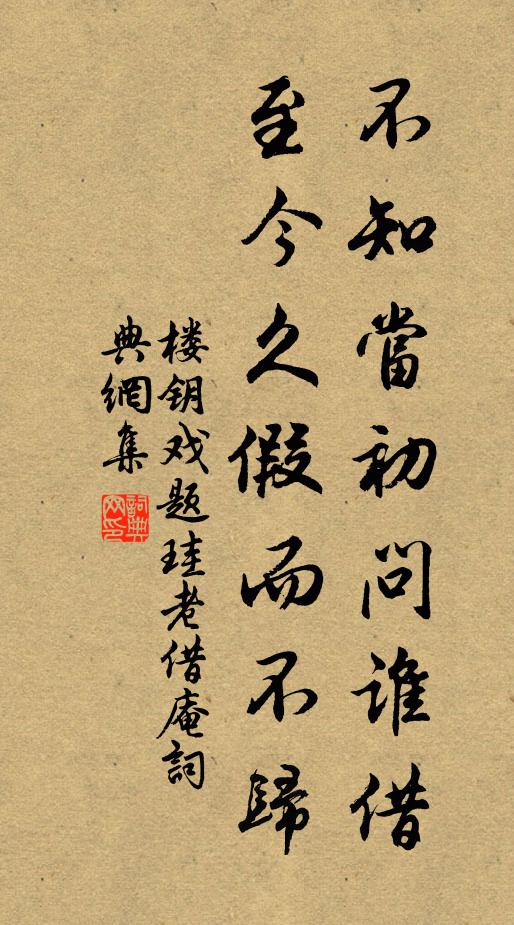 不知當初問誰借
至今久假而不歸
楼钥戏题珪老借庵詞
典網集
詞典
网印